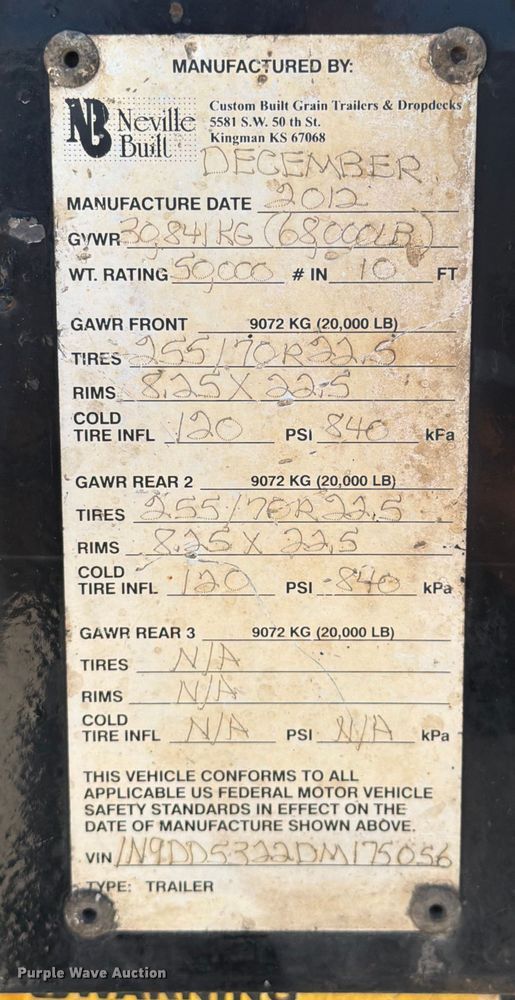 MANUFACTURED BY:
NB Neville Built
Custom Built Grain Trailers & Dropdecks
5581 S.W. 50 th St.
Kingman KS 67068
DECEMBER
MANUFACTURE DATE 2012
GVWR 30,841 KG (68,000 LB)
WT. RATING 50,000 # IN 10 FT
GAWR FRONT 9072 KG (20,000 LB)
TIRES 255/70R22.5
RIMS 8.25 X 22.5
COLD
TIRE INFL 120 PSI 840 kFa
GAWR REAR 2 9072 KG (20,000 LB)
TIRES 255/70R22.5
RIMS 8.25 X 22.5
COLD
TIRE INFL 120 PSI 840 kPa
GAWR REAR 3 9072 KG (20,000 LB)
TIRES N/A
RIMS N/A
COLD
TIRE INFL N/A PSI N/A kPa
THIS VEHICLE CONFORMS TO ALL
APPLICABLE US FEDERAL MOTOR VEHICLE
SAFETY STANDARDS IN EFFECT ON THE
DATE OF MANUFACTURE SHOWN ABOVE.
VIN 1N9DD5322DM175056
TYPE: TRAILER
Purple Wave Auction
WARNING